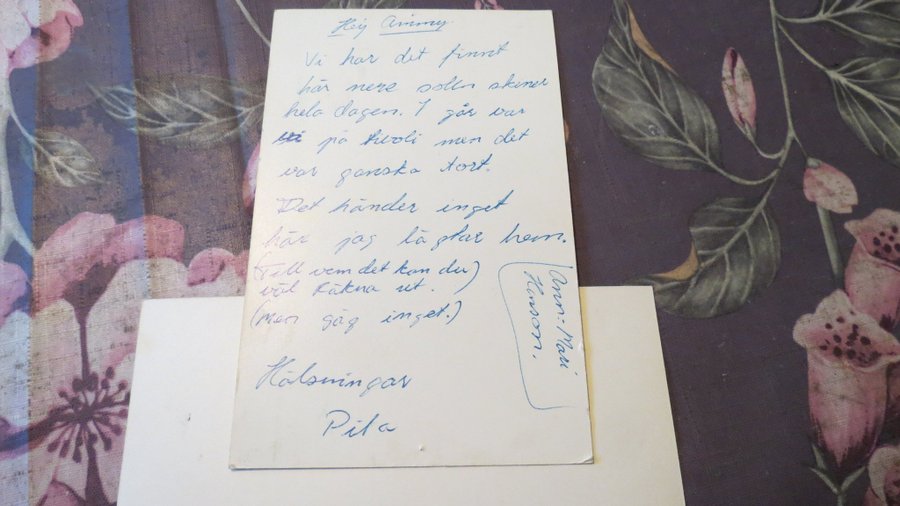 Hej Ammy
Vi har det finnt
här nere solen skiner
hela dagen. I går var
vi på tivoli men det
var ganska tort.
Det händer inget
här jag lägtar hem.
(Till vem det kan du)
väl räkna ut.
(Men säg inget.)
Hälsningar
Pita
Ann-Mari